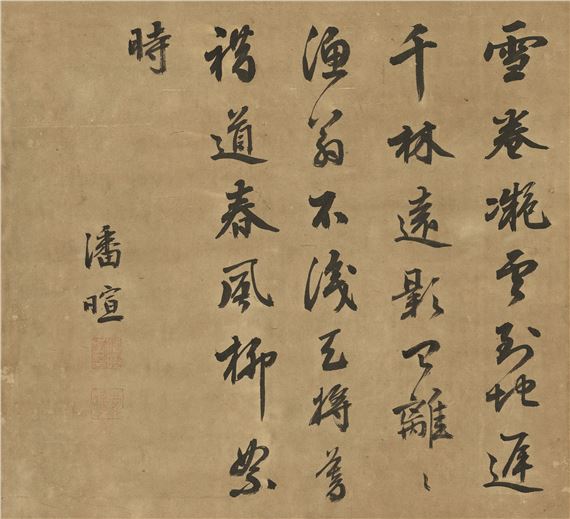 雪卷凝雲到地遲
千林遠影已離〻
漁翁不識天將暮
錯道春風柳絮
時
潘暄